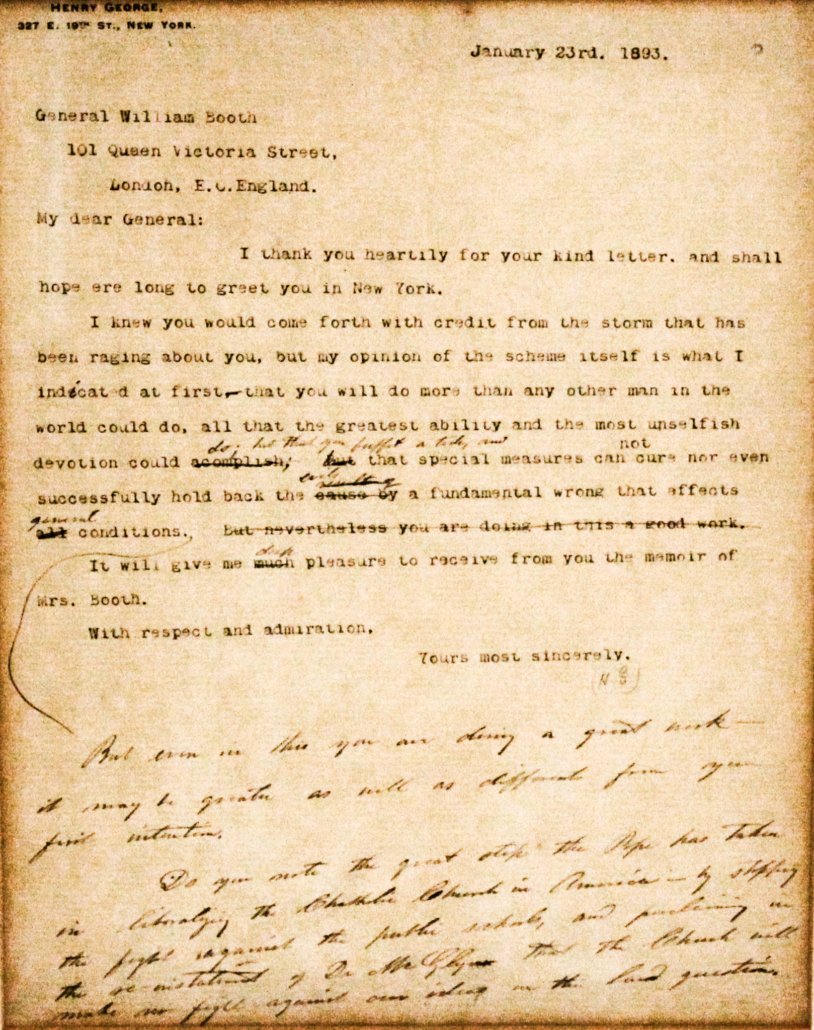 HENRY GEORGE,
327 E. 19TH ST., NEW YORK.
January 23rd. 1893.
General William Booth
101 Queen Victoria Street,
London, E.C.England.
My dear General:
I thank you heartily for your kind letter. and shall
hope ere long to greet you in New York.
I knew you would come forth with credit from the storm that has
been raging about you, but my opinion of the scheme itself is what I
indicated at first,—that you will do more than any other man in the
world could do, all that the greatest ability and the most unselfish
do; but that you a and not
devotion could acomplish; but that special measures can cure nor even
successfully hold back the cause by a fundamental wrong that affects
general
all conditions., But nevertheless you are doing in this a good work.
deep
It will give me much pleasure to receive from you the memoir of
Mrs. Booth.
With respect and admiration,
Yours most sincerely.
(H G)
But even in this you are doing a great work —
it may be greater as well as different from your
first intention.
Do you note the great step the Pope has taken
in liberalizing the Catholic Church in America — by stopping
the fight against the public schools, and proclaiming in
the re-instatement of Dr McGlynn that the Church will
make no fight against our ideas on the land question.